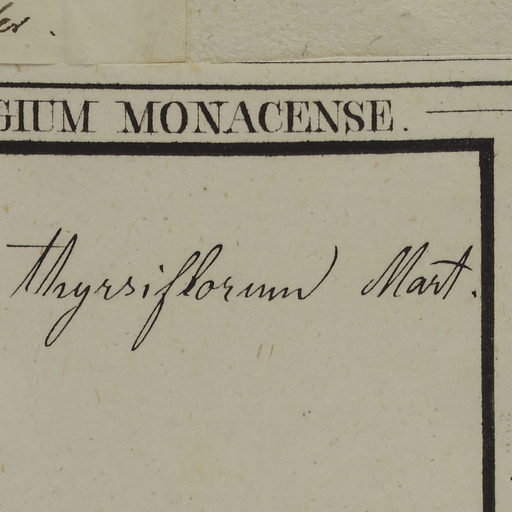 GIUM MONACENSE.
thyrsiflorum Mart.